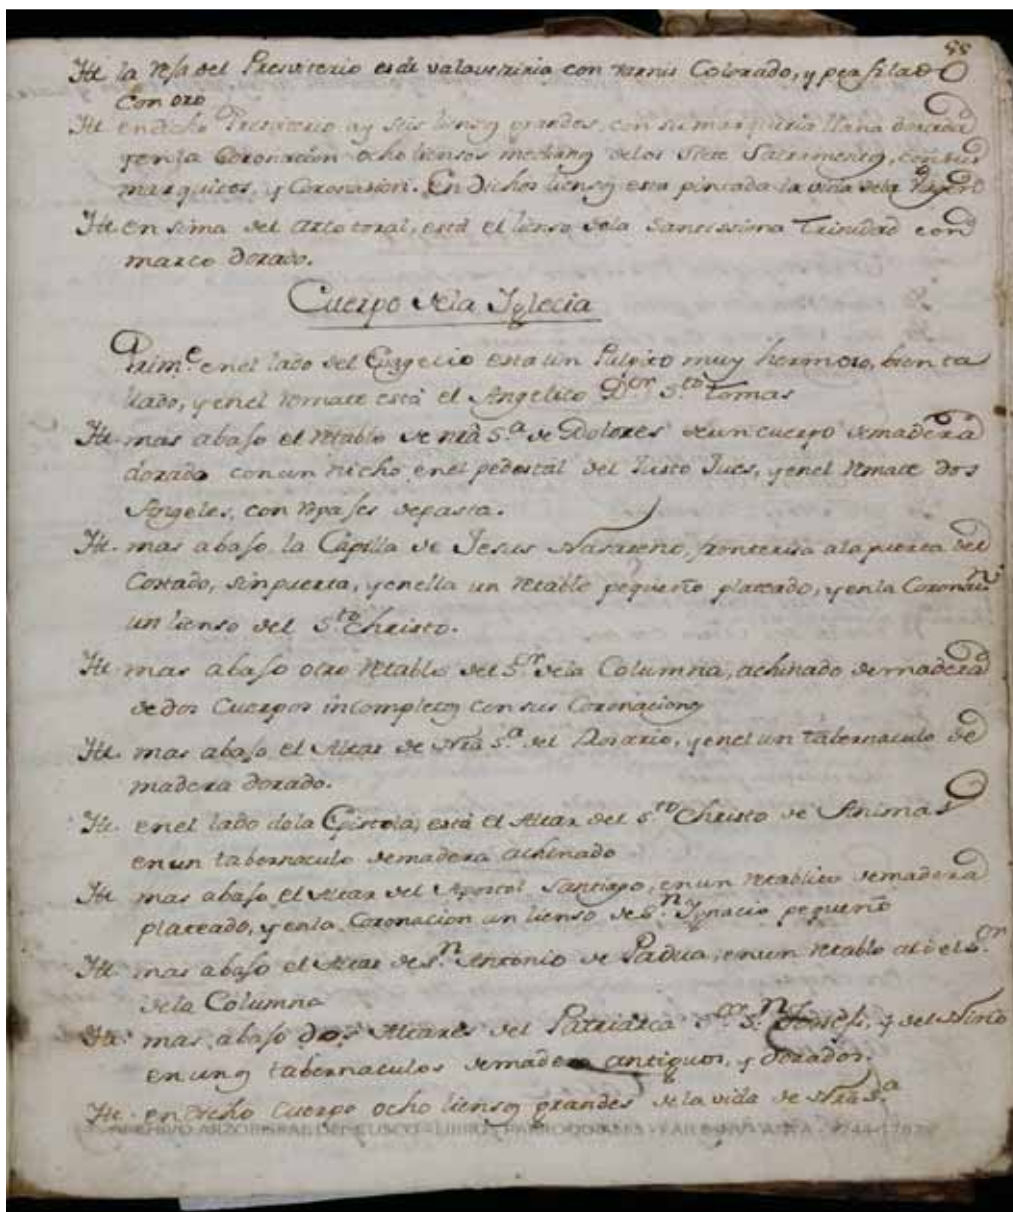 55
Itt la resa del Presviterio es de valaustriria con varnis Colorado, y perfilado
Con oro
Itt en dicho Presviterio ay seis liensos grandes, con su marqueria llana dorada
y en la Coronacion ocho liensos medianos delos Siete Sacramentos, con sus
marquitos, y Coronasion. En dichos liensos esta pintada la vida dela
Itt en sima del arco toral, está el lienso dela Santissima Trinidad con
marco dorado.
Cuerpo dela Yglecia
Prim.e en el lado del Evangelio esta un Pulpito muy hermoso, bien ta
llado, y en el remate está el Angelico D.or S.to Tomas
Itt. mas abajo el retablo de nra S.a de Dolores de un cuerpo de madera
dorado con un nicho en el pedestal del Justo Jues, y en el remate dos
Angeles, con de pasta.
Itt. mas abajo, la Capilla de Jesus Nasareno, fronterisa a la puerta del
Costado, sin puerta, y en ella un retablo pequeño plateado, y en la Coronac.n
un lienso del S.to Christo.
Itt mas abajo otro retablo del S.r dela Columna, achinado de madera
de dos Cuerpos incompletos con sus Coronaciones
Itt. mas abajo el Altar de Nra S.a del Rosario, y en el un tabernaculo de
madera dorado.
Itt. en el lado dela Epistola, está el Altar del S.to Christo de Animas
en un tabernaculo de madera achinado
Itt mas abajo el Altar del Apostol Santiago, en un retablito de madera
plateado, y en la Coronacion un lienso de S.n Ygnacio pequeño
Itt mas abajo el Altar de S.n Antonio de Padua, en un retablo al del S.or
dela Columna
Itt. mas abajo dos Altares del Patriarca S.or S.n Joseph, y del Niño
en unos tabernaculos de madera antiguos, y dorados.
Itt. en dicho Cuerpo ocho liensos grandes de la vida de Nra S.a
ARCHIVO ARZOBISPAL DEL CUSCO - LIBROS PARROQUIALES